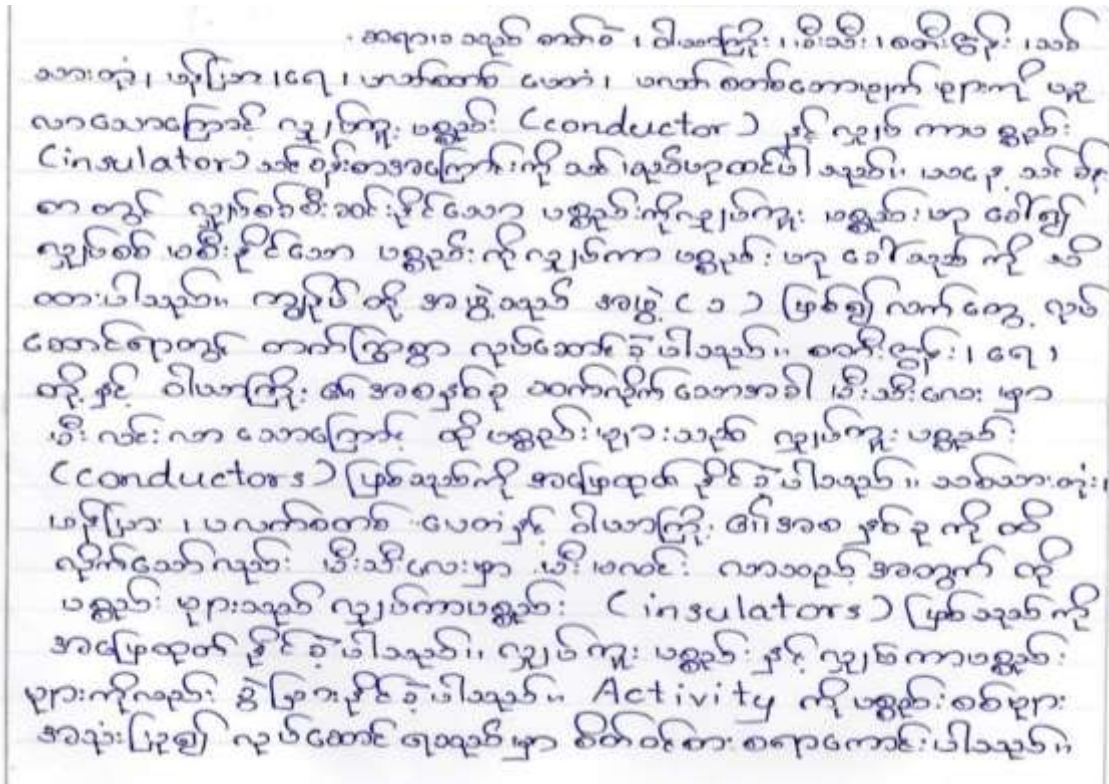 ဆရာမသည် ဓာတ်ခဲ ၊ ဝါယာကြိုး ၊ မီးသီး ၊ စတီးဇွန်း ၊ သစ်
သားတုံး ၊ ဖန်ပြား ၊ ရေ ၊ ပလတ်စတစ် ပေတံ ၊ ပလတ်စတစ်ကောဖျက် များကို ယူ
လာသောကြောင့် လျှပ်ကူး ပစ္စည်း (conductor) နှင့် လျှပ် ကာပစ္စည်း
(insulator) သင်ခန်းစာအကြောင်းကို သင် မည်ဟုထင်ပါသည်။ ယနေ့ သင်ခန်း
စာ တွင် လျှပ်စစ်စီးဆင်းနိုင်သော ပစ္စည်းကိုလျှပ်ကူး ပစ္စည်း ဟု ခေါ်၍
လျှပ်စစ် မစီးနိုင်သော ပစ္စည်းကိုလျှပ်ကာ ပစ္စည်း ဟု ခေါ်သည် ကို သိ
ထားပါသည်။ ကျွန်ုပ် တို့ အဖွဲ့သည် အဖွဲ့ (၁) ဖြစ်၍ လက်တွေ့ လုပ်
ဆောင်ရာတွင် တက်ကြွစွာ လုပ်ဆောင် ခဲ့ပါသည်။ စတီးဇွန်း ၊ ရေ ၊
တို့ နှင့် ဝါယာကြိုး ၏ အစနှစ်ခု ဆက်လိုက်သောအခါ မီးသီးလေး မှာ
မီး လင်းလာ သောကြောင့် ထိုပစ္စည်းများသည် လျှပ်ကူး ပစ္စည်း
(conductors) ဖြစ်သည်ကို အဖြေထုတ် နိုင်ခဲ့ပါသည်။ သစ်သားတုံး၊
ဖန်ပြား ၊ ပလက်စတစ် ပေတံနှင့် ဝါယာကြိုး ၏ အစ နှစ်ခု ကို ထိ
လိုက်သော်လည်း မီးသီးလေးမှာ မီးမလင်း လာသည့်အတွက် ထို
ပစ္စည်း များသည် လျှပ်ကာပစ္စည်း (insulators) ဖြစ်သည်ကို
အဖြေထုတ် နိုင်ခဲ့ပါသည်။ လျှပ်ကူး ပစ္စည်း နှင့် လျှပ်ကာပစ္စည်း
များကိုလည်း ခွဲခြားနိုင်ခဲ့ပါသည်။ Activity ကို ပစ္စည်းစစ်များ
အသုံးပြု၍ လုပ်ဆောင် ရသည်မှာ စိတ်ဝင်စား စရာကောင်းပါသည်။